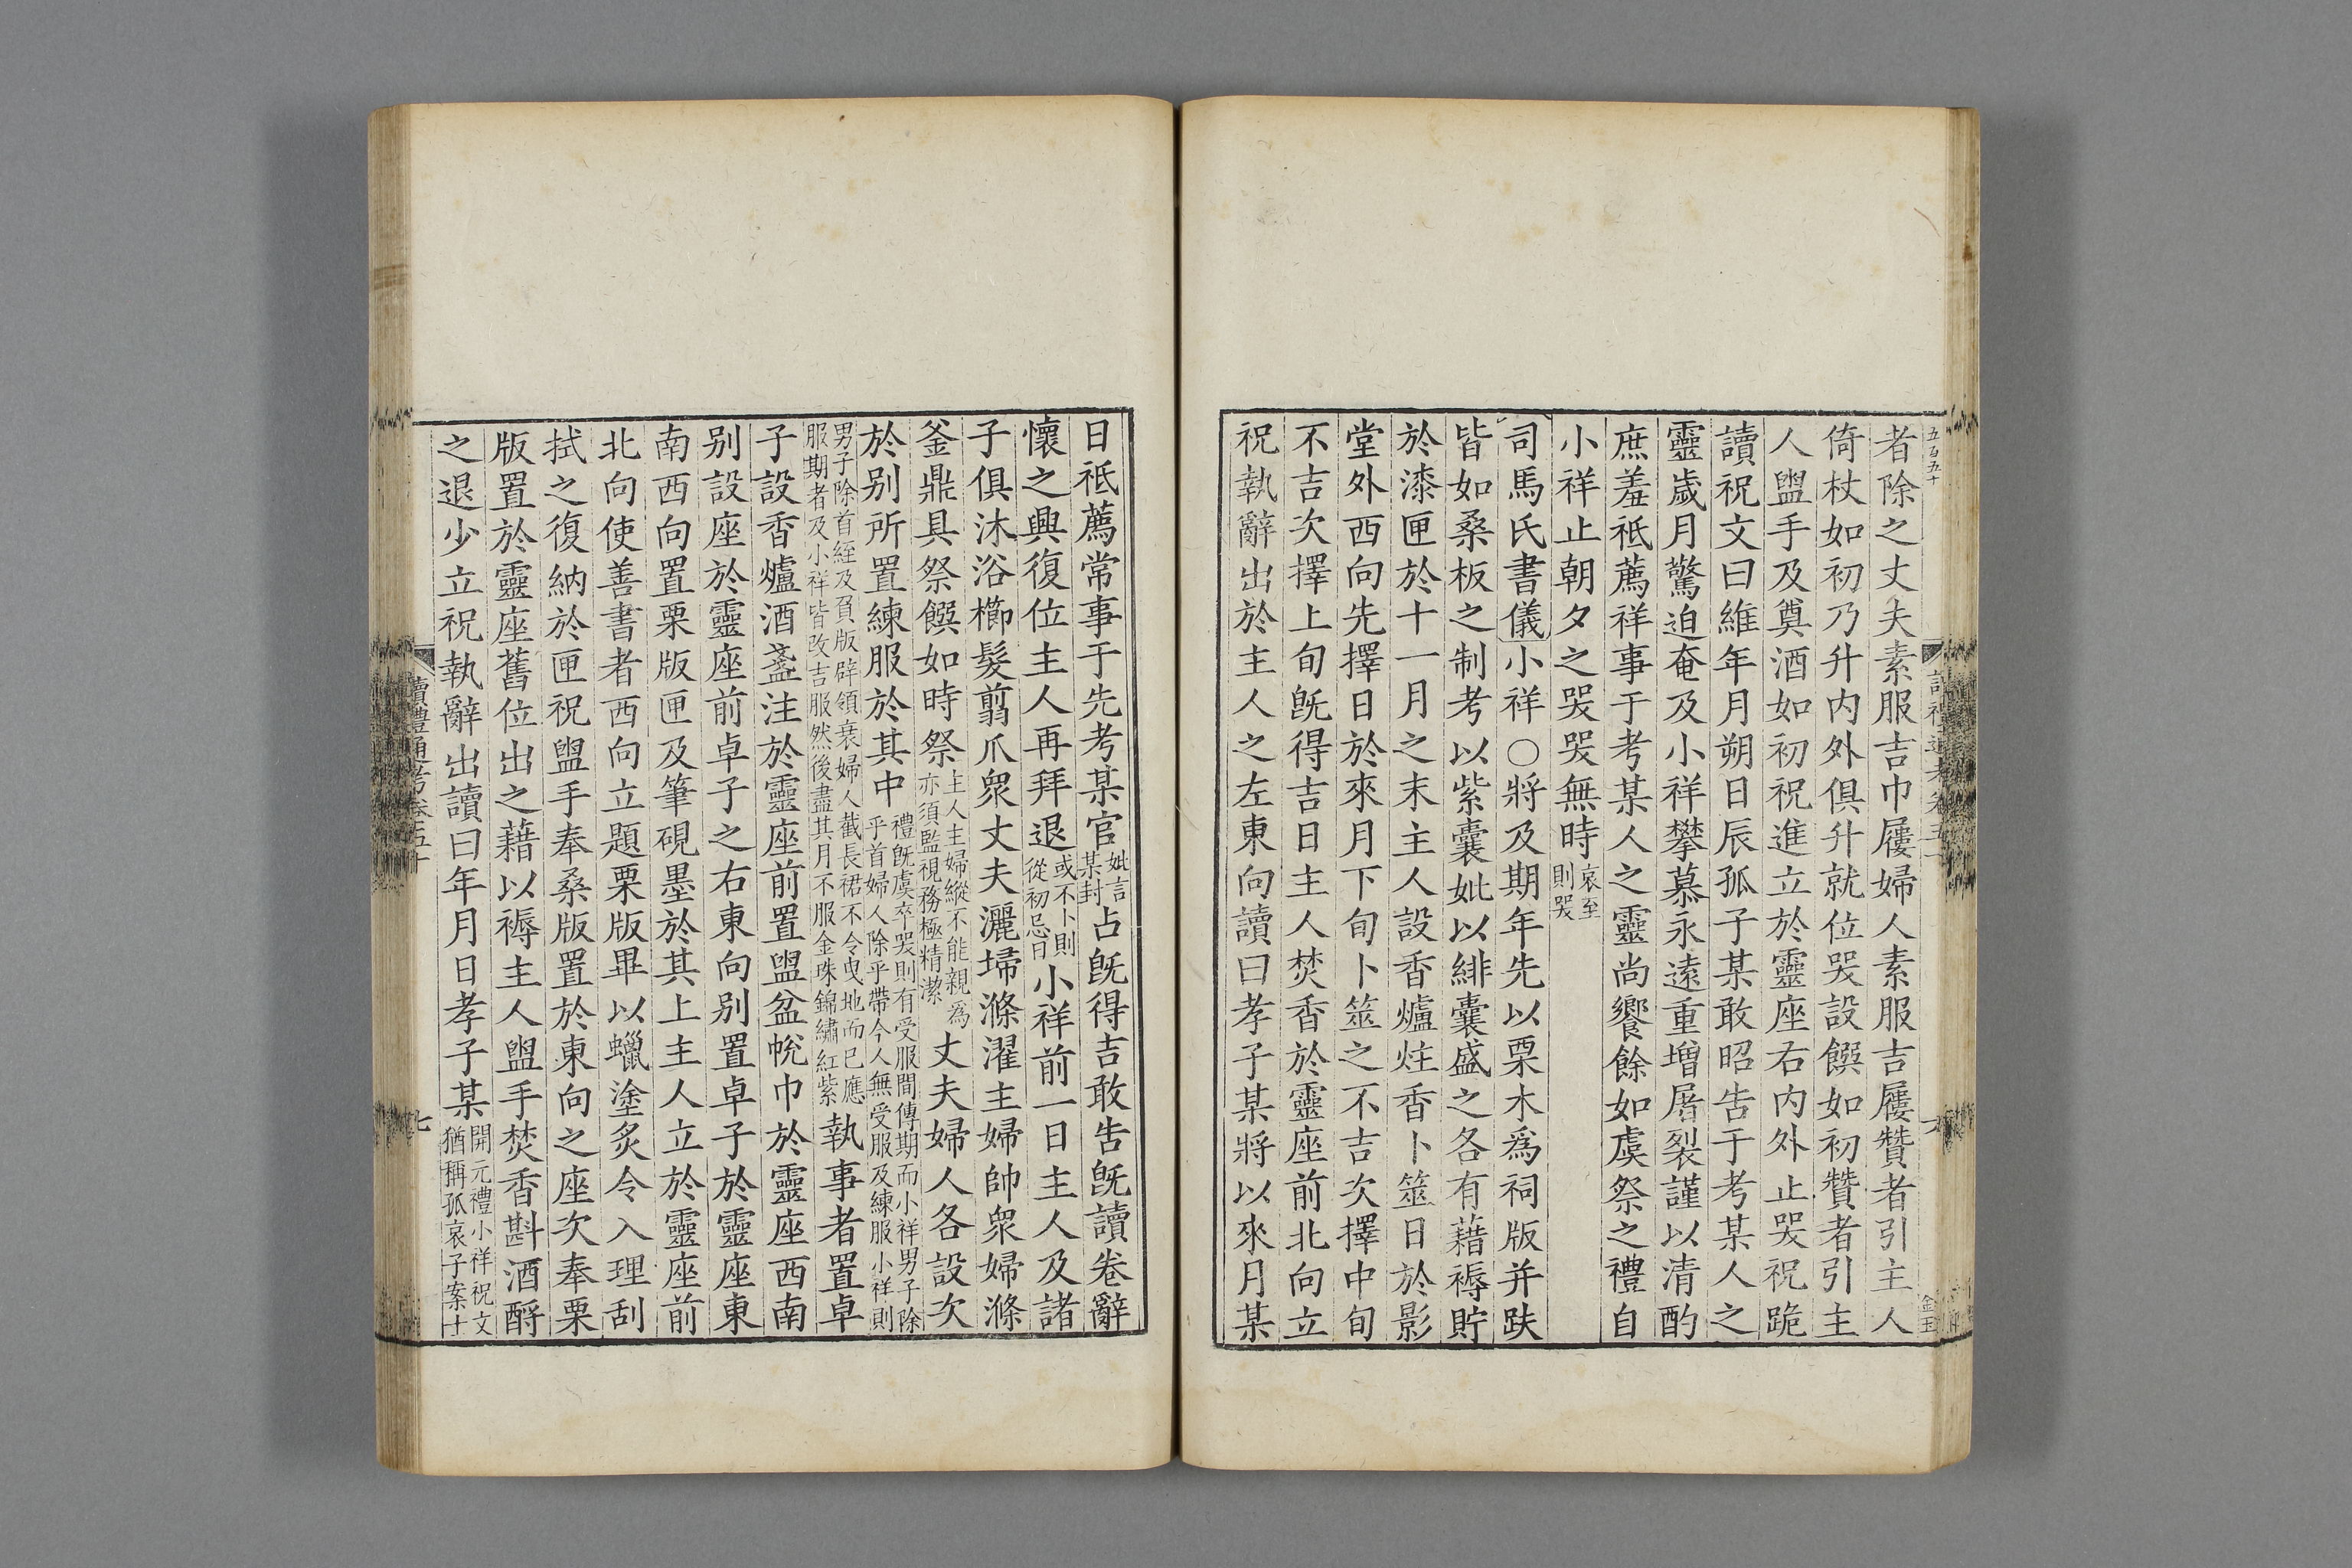 五百五十
者除之丈夫素服吉巾屨婦人素服吉屨贊者引主人
倚杖如初乃升内外俱升就位哭設饌如初贊者引主
人盥手及奠酒如初祝進立於靈座右内外止哭祝跪
讀祝文曰維年月朔日辰孤子某敢昭告于考某人之
靈歲月驚迫奄及小祥攀慕永遠重增屠裂謹以清酌
庶羞祗薦祥事于考某人之靈尚饗餘如虞祭之禮自
小祥止朝夕之哭哭無時哀至則哭
司馬氏書儀小祥○將及期年先以栗木爲祠版并趺
皆如桑板之制考以紫囊妣以緋囊盛之各有藉褥貯
於漆匣於十一月之末主人設香爐炷香卜筮日於影
堂外西向先擇日於來月下旬卜筮之不吉次擇中旬
不吉次擇上旬旣得吉日主人焚香於靈座前北向立
祝執辭出於主人之左東向讀曰孝子某將以來月某
六
金玉
日祗薦常事于先考某官妣言某封占旣得吉敢告旣讀卷辭
懷之興復位主人再拜退或不卜則從初忌日小祥前一日主人及諸
子俱沐浴櫛髮翦爪衆丈夫灑埽滌濯主婦帥衆婦滌
釜鼎具祭饌如時祭主人主婦縱不能親爲亦須監視務極精潔丈夫婦人各設次
於别所置練服於其中禮旣虞卒哭則有受服間傳期而小祥男子除乎首婦人除乎帶今人無受服及練服小祥則
男子除首絰及負版辟領衰婦人截長裙不令曳地而已應服期者及小祥皆改吉服然後盡其月不服金珠錦繡紅紫執事者置卓
子設香爐酒盞注於靈座前置盥盆帨巾於靈座西南
别設座於靈座前卓子之右東向别置卓子於靈座東
南西向置栗版匣及筆硯墨於其上主人立於靈座前
北向使善書者西向立題栗版畢以蠟塗炙令入理刮
拭之復納於匣祝盥手奉桑版置於東向之座次奉栗
版置於靈座舊位出之藉以褥主人盥手焚香斟酒酹
之退少立祝執辭出讀曰年月日孝子某開元禮小祥祝文猶稱孤哀子案士
讀禮通考卷五十
七